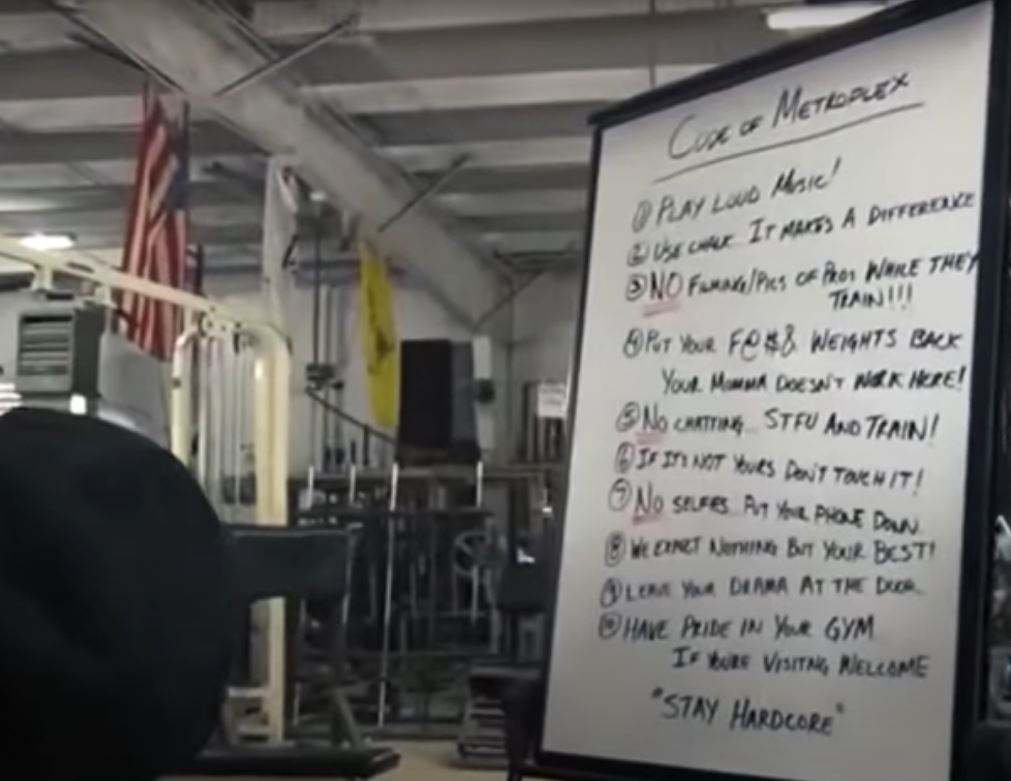 CODE OF METROPLEX
① PLAY LOUD MUSIC!
② USE CHALK IT MAKES A DIFFERENCE
③ NO FILMING/PICS OF PROS WHILE THEY
TRAIN!!!
④ PUT YOUR F@#$& WEIGHTS BACK
YOUR MOMMA DOESN'T WORK HERE!
⑤ NO CHATTING... STFU AND TRAIN!
⑥ IF IT'S NOT YOURS DON'T TOUCH IT!
⑦ NO SELFIES.. PUT YOUR PHONE DOWN
⑧ WE EXPECT NOTHING BUT YOUR BEST!
⑨ LEAVE YOUR DRAMA AT THE DOOR
⑩ HAVE PRIDE IN YOUR GYM
IF YOU'RE VISITNG WELCOME
"STAY HARDCORE"